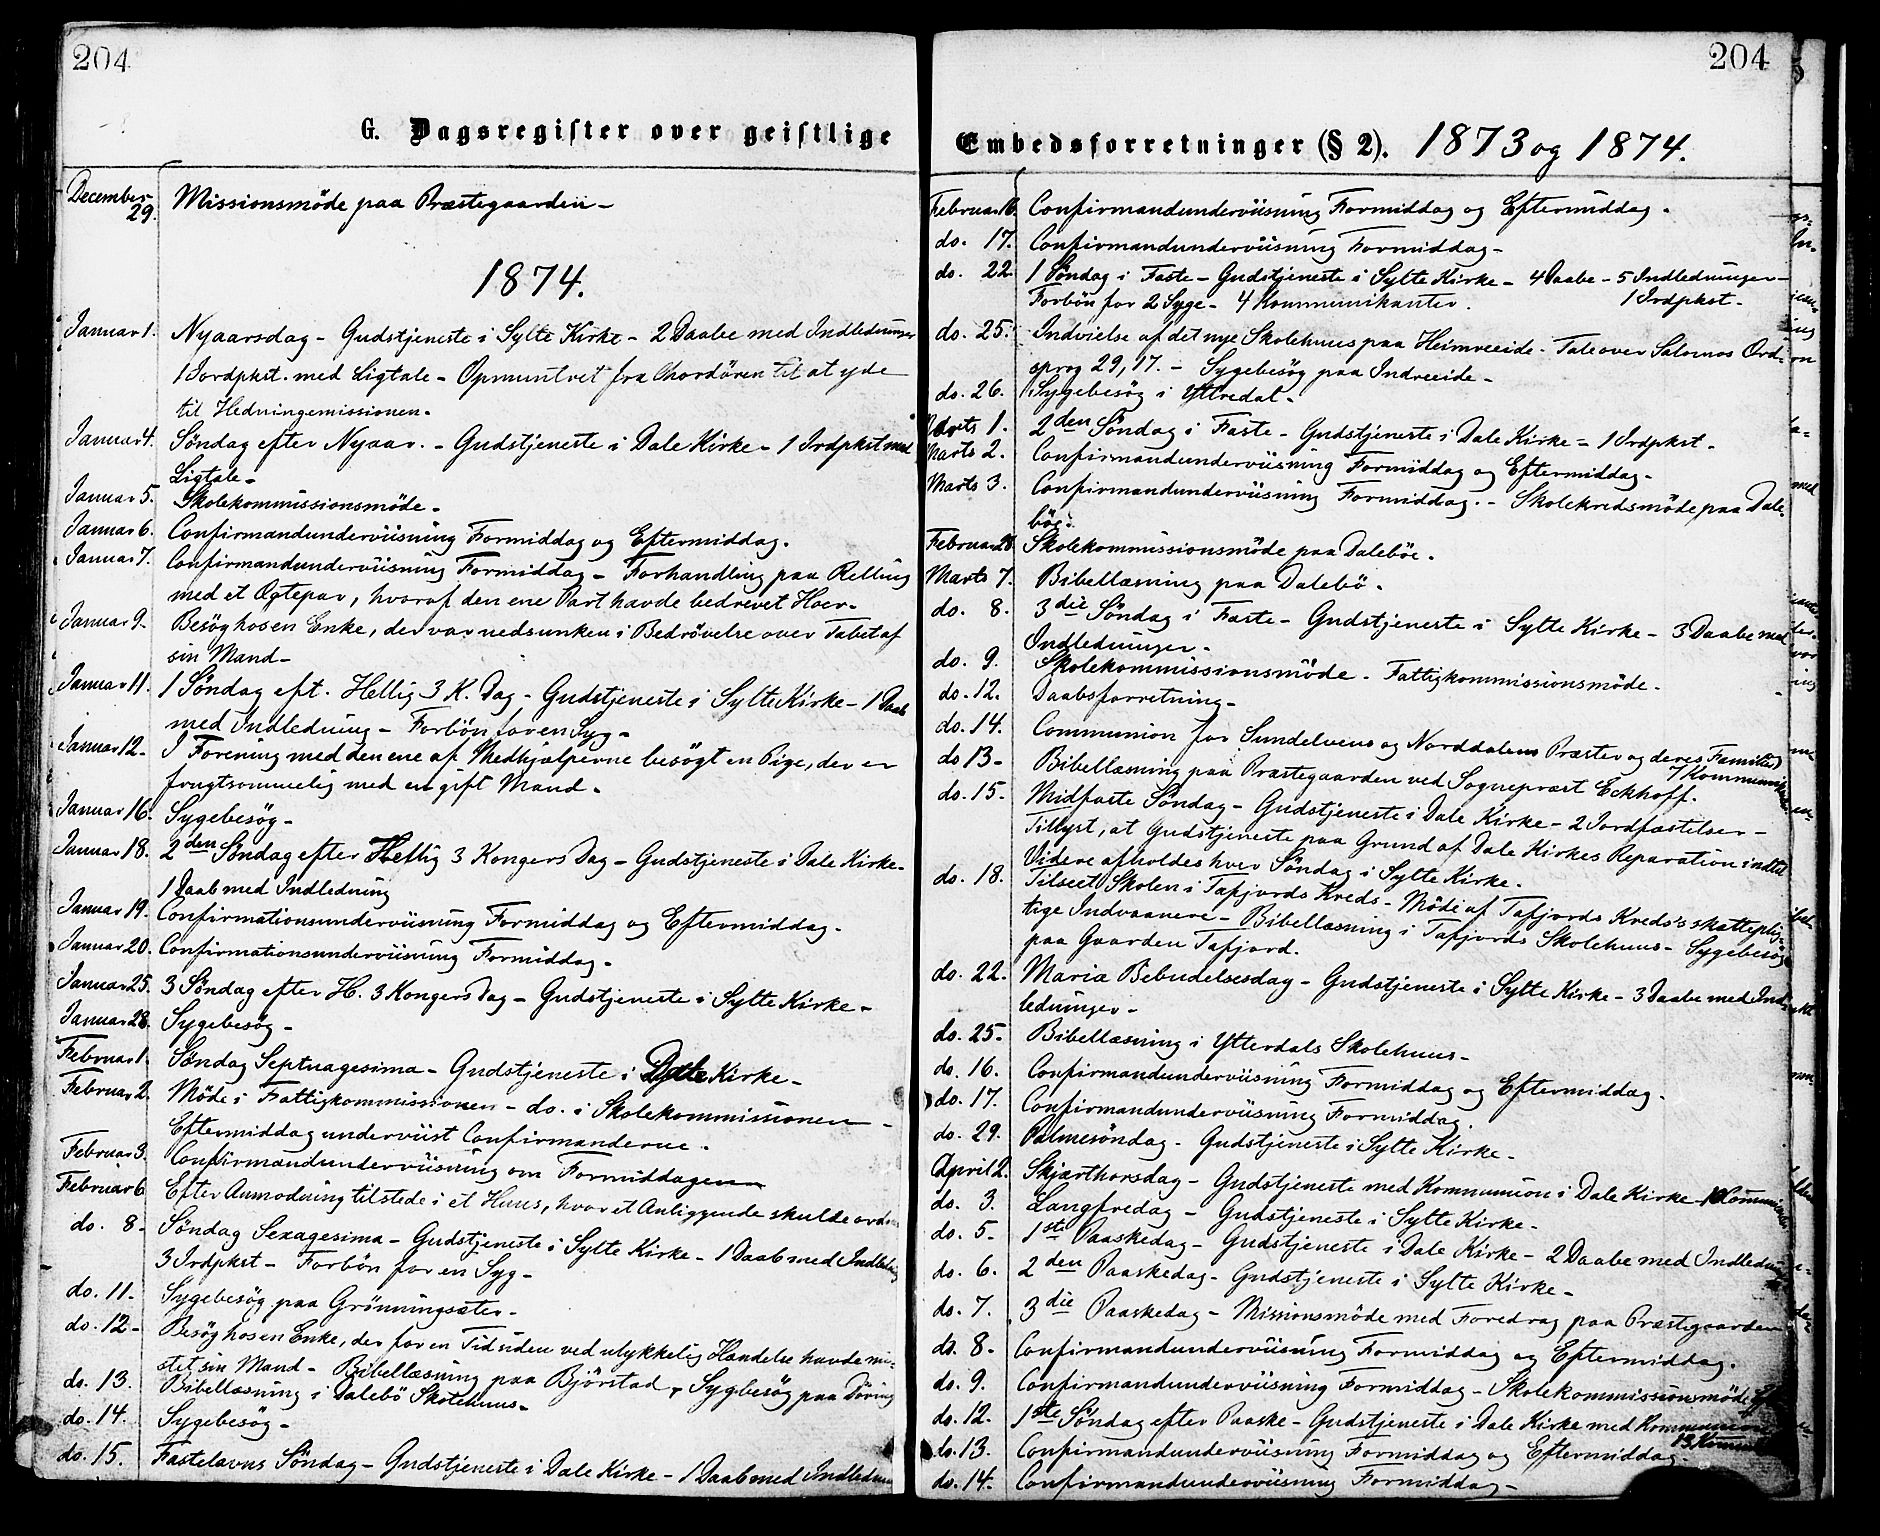 204
G. Dagsregister over geistlige
December 29. Missionsmöde paa Præstegaarden -
1874.
Januar 1. Nyaarsdag - Gudstjeneste i Sylte Kirke - 2 Daabe med Indledninger
1 Jordpkst. med Ligtale - Opmuntret fra Chordören til at yde
til Hedningemissionen -
Januar 4. Söndag efter Nyaar. - Gudstjeneste i Dale Kirke - 1 Jrdpkst med
Ligtale -
Januar 5. Skolekommissionsmöde -
Januar 6. Confirmandunderviisning Formiddag og Eftermiddag.
Januar 7. Confirmandunderviisning Formiddag - Forhandling paa Relling
med et Ægtepar, hvoraf den ene Part havde bedrevet Hoer -
Januar 9. Besög hos en Enke, der var nedsunken i Bedrövelse over Tabet af
sin Mand -
Januar 11. 1 Söndag eft. Hellig 3 K. Dag - Gudstjeneste i Sylte Kirke - 1 Daab
med Indledning - Forbön for en Syg -
Januar 12. I Forening med den ene af Medhjælperne besögt en Pige, der er
frugtsommelig med en gift Mand -
Januar 16. Sygebesög -
Januar 18. 2den Söndag efter Hellig 3 Kongers Dag - Gudstjeneste i Dale Kirke -
1 Daab med Indledning
Januar 19. Confirmationsunderviisning Formiddag og Eftermiddag -
Januar 20. Confirmationsunderviisning Formiddag -
Januar 25. 3 Söndag efter H. 3 Kongers Dag - Gudstjeneste i Sylte Kirke -
Januar 28. Sygebesög -
Februar 1. Söndag Septuagesima - Gudstjeneste i Kirke -
Februar 2. Möde i Fattigkommissionen - do. i Skolekommissionen -
Eftermiddag underviist Confirmanderne.
Februar 3. Confirmandunderviisning om Formiddagen
Februar 6 Efter Anmodning tilstede i et Huus, hvor et Anliggende skulde
do. 8 - Söndag Sexagesima - Gudstjeneste i Sylte Kirke - 1 Daab med Indledning
3 Jrdpkst - Forbön for en Syg -
do. 11 - Sygebesög paa Grönningsæter -
do. 12 - Besög hos en Enke, der for en Tid siden ved ulykkelig Hændelse havde mi-
stet sin Mand - Bibellæsning paa Björstad, Sygebesög paa Döving
do. 13. Bibellæsning i Dalebö Skolehuus -
do. 14. Sygebesög -
do. 15. Fastelavns Söndag - Gudstjeneste i Dale Kirke - 1 Daab med Indledning
204
Embedsforretninger (§ 2). 1873 og 1874.
Februar 16. Confirmandunderviisning Formiddag og Eftermiddag.
do. 17. Confirmandunderviisning Formiddag -
do. 22. 1 Söndag i Faste - Gudstjeneste i Sylte Kirke - 4 Daabe - 5 Indledninger -
Forbön for 2 Syge - 4 Kommunikanter. 1 Jrdpkst -
do. 25. Indvielse af det nye Skolehuus paa Heimreeide - Tale over Salomos Ord-
sprog 29, 17. - Sygebesög paa Indreeide -
do. 26. Sygebesög i Yttredal -
Marts 1. 2den Söndag i Faste - Gudstjeneste i Dale Kirke - 1 Jrdpkst -
Marts 2. Confirmandunderviisning Formiddag og Eftermiddag -
Marts 3. Confirmandunderviisning Formiddag. - Skolekredsmöde paa Dale-
böe.
Februar 28 Skolekommissionsmöde paa Daleböe.
Marts 7. Bibellæsning paa Dalebö.
do. 8. 3die Söndag i Faste - Gudstjeneste i Sylte Kirke - 3 Daabe med
Indledninger -
do. 9. Skolekommissionsmöde - Fattigkommissionsmöde -
do. 12. Daabsforretning -
do. 14. Communion for Sundelvens og Norddalens Præster og deres Familier
7 Kommunikanter
do 13 - Bibellæsning paa Præstegaarden ved Sognepræst Eckhoff.
do. 15. Midfaste Söndag - Gudstjeneste i Dale Kirke - 2 Jordfæstelser -
Tillyst, at Gudstjeneste paa Grund af Dale Kirkes Reparation indtil
Videre afholdes hver Söndag i Sylte Kirke.
do. 18. Tilseet Skolen i Tafjords Kreds - Möde af Tafjords Kreds's skatteplig-
tige Indvaanere - Bibellæsning i Tafjords Skolehuus - Sygebesög
paa Gaarden Tafjord.
do. 22. Maria Bebudelsesdag - Gudstjeneste i Sylte Kirke - 3 Daabe med Ind-
ledninger -
do. 25 - Bibellæsning i Ytterdals Skolehuus -
do. 16. Confirmandunderviisning Formiddag og Eftermiddag.
do. 17. Confirmandunderviisning Formiddag.
do. 29. Palmesöndag - Gudstjeneste i Sylte Kirke -
April 2. Skjærthorsdag - Gudstjeneste med Kommunion i Dale Kirke -
do. 3. Langfredag - Gudstjeneste i Sylte Kirke -
do. 5 - 1ste Paaskedag - Gudstjeneste i Dale Kirke - 2 Daabe med Indledninger
do. 6. 2den Paaskedag - Gudstjeneste i Sylte Kirke -
do. 7. 3die Paaskedag - Missionsmöde med Foredrag paa Præstegaarden
do. 8 - Confirmandunderviisning Formiddag og Eftermiddag.
do. 9. Confirmandunderviisning Formiddag - Skolekommissionsmöde
do. 12. 1ste Söndag efter Paaske - Gudstjeneste i Dale Kirke med Kommunion
do. 13. Confirmandunderviisning Formiddag og Eftermiddag -
do. 14. Confirmandunderviisning Formiddag -